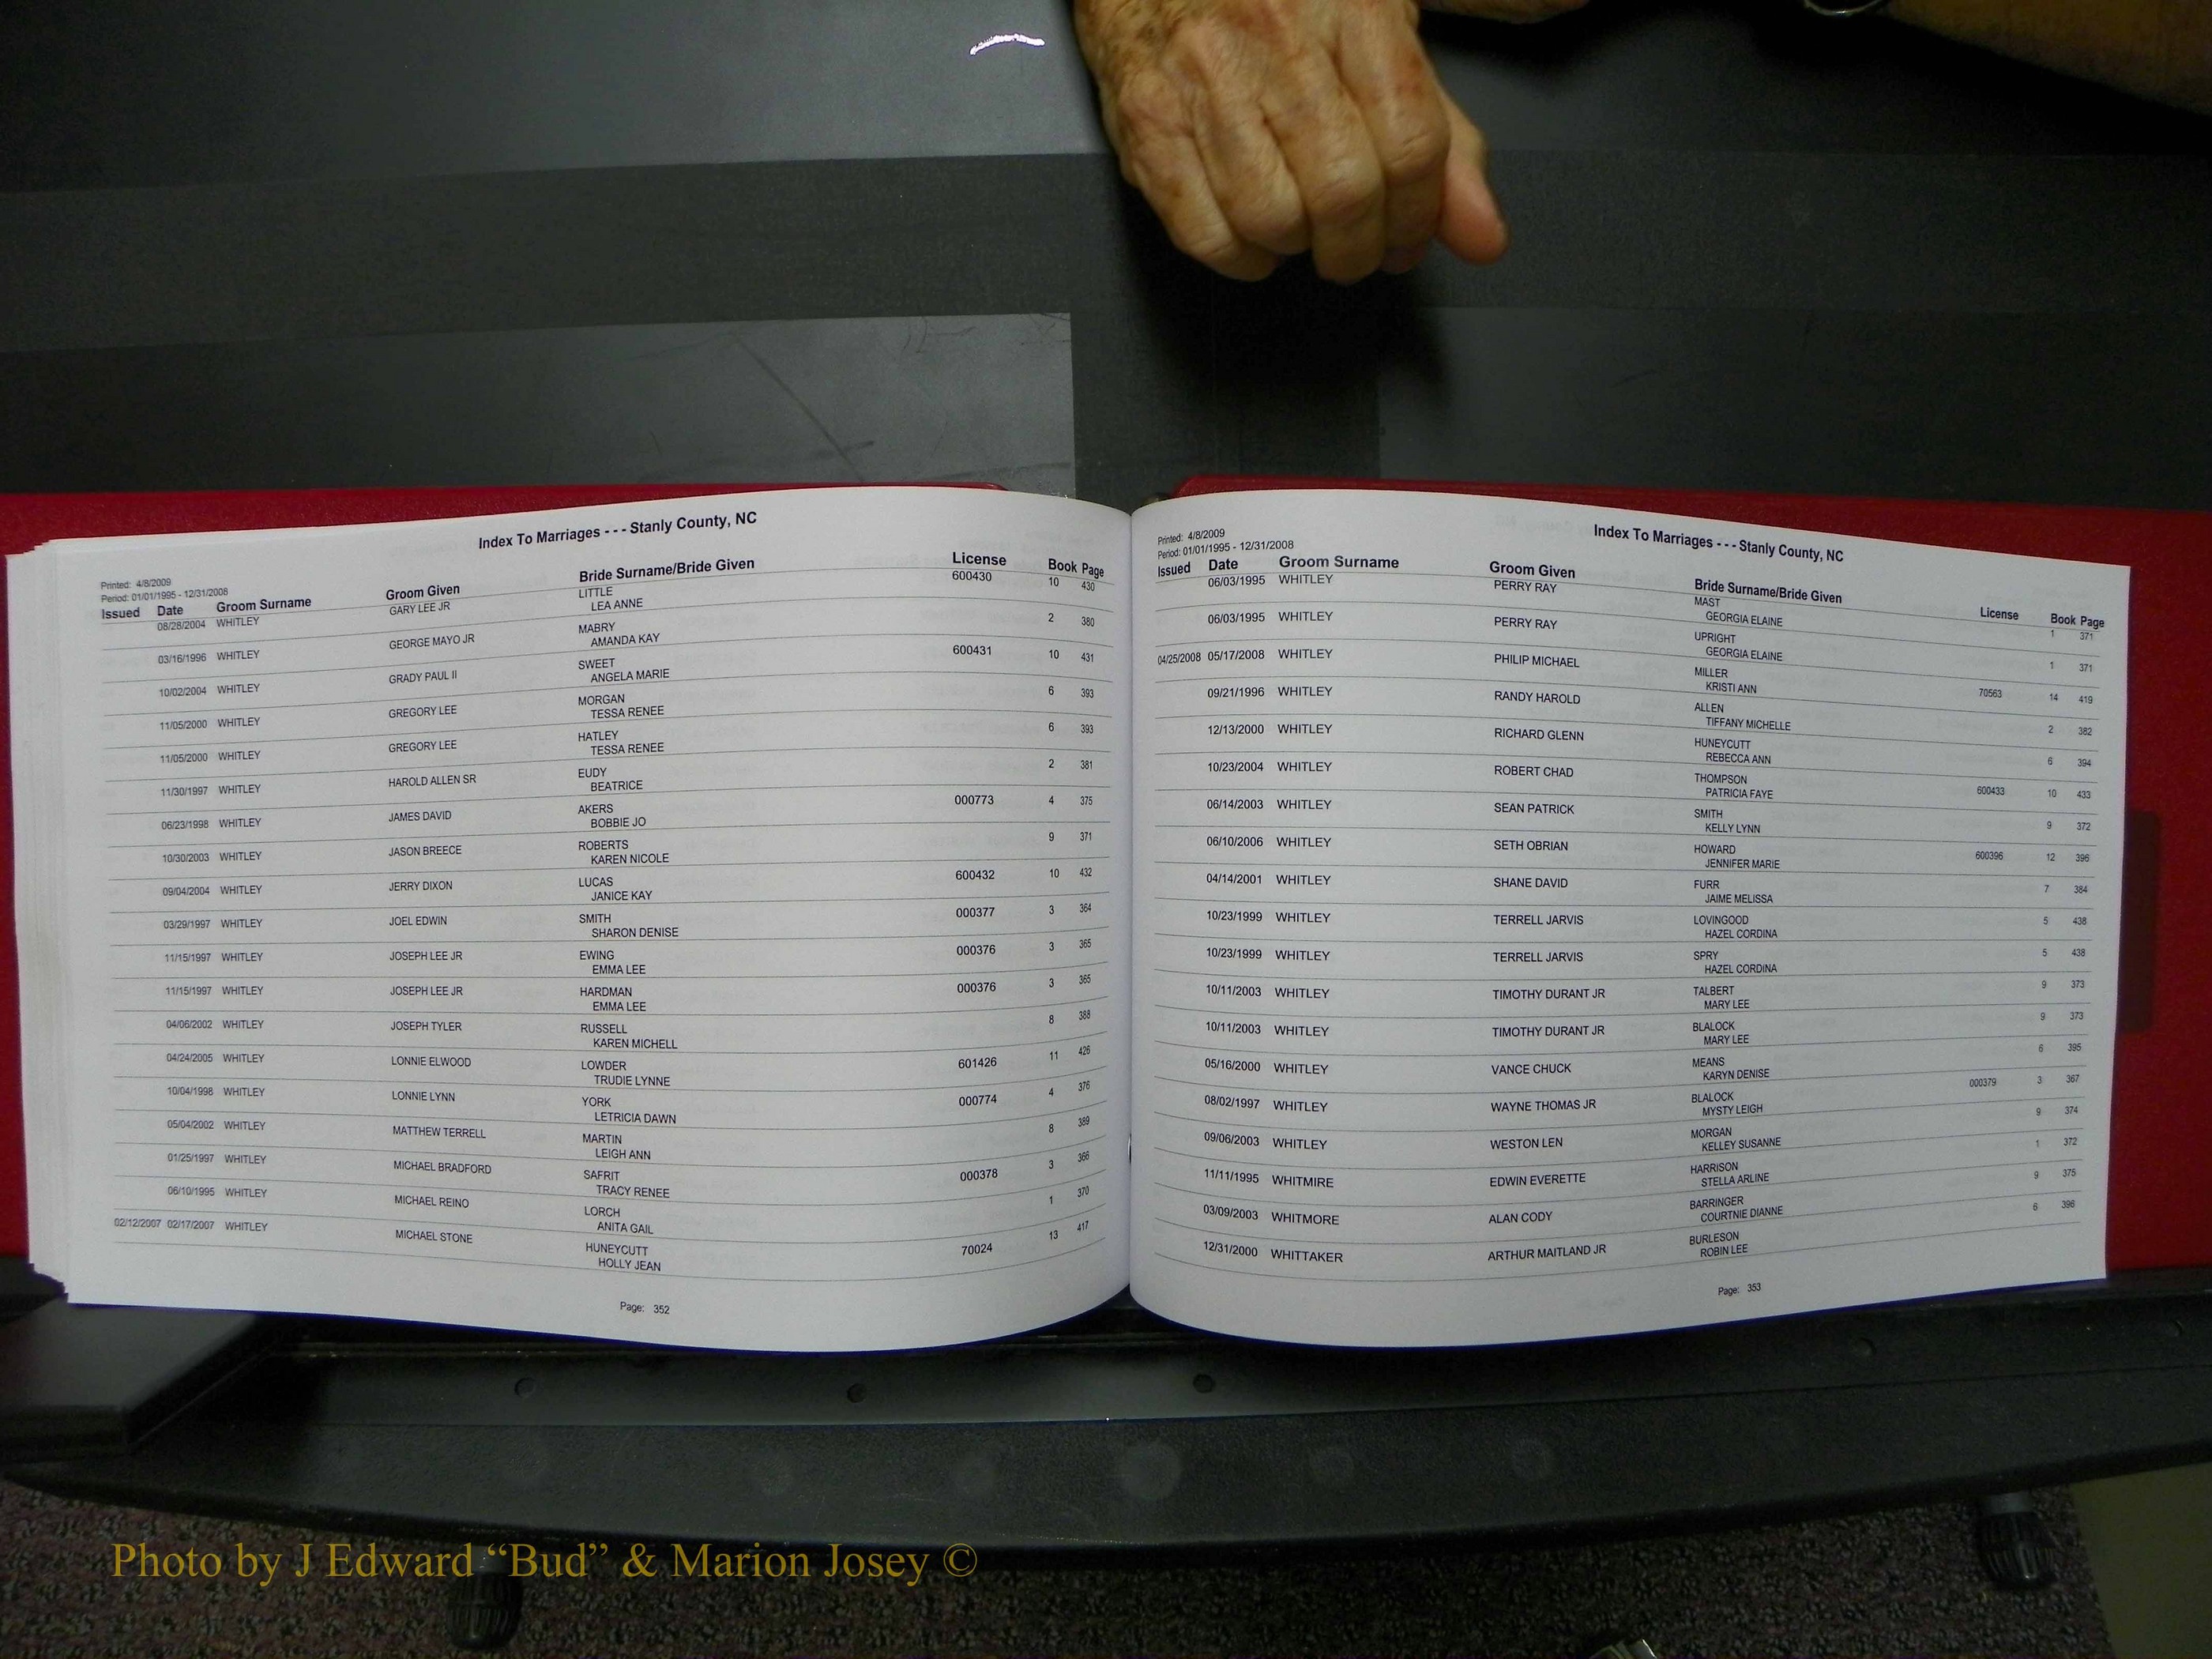 Index To Marriages - - - Stanly County, NC
Printed: 4/8/2009
Period: 01/01/1995 - 12/31/2008
Issued Date Groom Surname Groom Given Bride Surname/Bride Given License Book Page
08/28/2004 WHITLEY GARY LEE JR LITTLE 600430 10 430
LEA ANNE
03/16/1996 WHITLEY GEORGE MAYO JR MABRY 2 380
AMANDA KAY
10/02/2004 WHITLEY GRADY PAUL II SWEET 600431 10 431
ANGELA MARIE
11/05/2000 WHITLEY GREGORY LEE MORGAN 6 393
TESSA RENEE
11/05/2000 WHITLEY GREGORY LEE HATLEY 6 393
TESSA RENEE
11/30/1997 WHITLEY HAROLD ALLEN SR EUDY 2 381
BEATRICE
06/23/1998 WHITLEY JAMES DAVID AKERS 000773 4 375
BOBBIE JO
10/30/2003 WHITLEY JASON BREECE ROBERTS 9 371
KAREN NICOLE
09/04/2004 WHITLEY JERRY DIXON LUCAS 600432 10 432
JANICE KAY
03/29/1997 WHITLEY JOEL EDWIN SMITH 000377 3 364
SHARON DENISE
11/15/1997 WHITLEY JOSEPH LEE JR EWING 000376 3 365
EMMA LEE
11/15/1997 WHITLEY JOSEPH LEE JR HARDMAN 000376 3 365
EMMA LEE
04/06/2002 WHITLEY JOSEPH TYLER RUSSELL 8 388
KAREN MICHELL
04/24/2005 WHITLEY LONNIE ELWOOD LOWDER 601426 11 426
TRUDIE LYNNE
10/04/1998 WHITLEY LONNIE LYNN YORK 000774 4 376
LETRICIA DAWN
05/04/2002 WHITLEY MATTHEW TERRELL MARTIN 8 389
LEIGH ANN
01/25/1997 WHITLEY MICHAEL BRADFORD SAFRIT 000378 3 366
TRACY RENEE
06/10/1995 WHITLEY MICHAEL REINO LORCH 1 370
ANITA GAIL
02/12/2007 02/17/2007 WHITLEY MICHAEL STONE HUNEYCUTT 70024 13 417
HOLLY JEAN
Page: 352
Index To Marriages - - - Stanly County, NC
Printed: 4/8/2009
Period: 01/01/1995 - 12/31/2008
Issued Date Groom Surname Groom Given Bride Surname/Bride Given License Book Page
06/03/1995 WHITLEY PERRY RAY MAST 1 371
GEORGIA ELAINE
06/03/1995 WHITLEY PERRY RAY UPRIGHT 1 371
GEORGIA ELAINE
04/25/2008 05/17/2008 WHITLEY PHILIP MICHAEL MILLER 70563 14 419
KRISTI ANN
09/21/1996 WHITLEY RANDY HAROLD ALLEN 2 382
TIFFANY MICHELLE
12/13/2000 WHITLEY RICHARD GLENN HUNEYCUTT 6 394
REBECCA ANN
10/23/2004 WHITLEY ROBERT CHAD THOMPSON 600433 10 433
PATRICIA FAYE
06/14/2003 WHITLEY SEAN PATRICK SMITH 9 372
KELLY LYNN
06/10/2006 WHITLEY SETH OBRIAN HOWARD 600396 12 396
JENNIFER MARIE
04/14/2001 WHITLEY SHANE DAVID FURR 7 384
JAIME MELISSA
10/23/1999 WHITLEY TERRELL JARVIS LOVINGOOD 5 438
HAZEL CORDINA
10/23/1999 WHITLEY TERRELL JARVIS SPRY 5 438
HAZEL CORDINA
10/11/2003 WHITLEY TIMOTHY DURANT JR TALBERT 9 373
MARY LEE
10/11/2003 WHITLEY TIMOTHY DURANT JR BLALOCK 9 373
MARY LEE
05/16/2000 WHITLEY VANCE CHUCK MEANS 6 395
KARYN DENISE
08/02/1997 WHITLEY WAYNE THOMAS JR BLALOCK 000379 3 367
MYSTY LEIGH
09/06/2003 WHITLEY WESTON LEN MORGAN 9 374
KELLEY SUSANNE
11/11/1995 WHITMIRE EDWIN EVERETTE HARRISON 1 372
STELLA ARLINE
03/09/2003 WHITMORE ALAN CODY BARRINGER 9 375
COURTNIE DIANNE
12/31/2000 WHITTAKER ARTHUR MAITLAND JR BURLESON 6 396
ROBIN LEE
Page: 353
Photo by J Edward “Bud” & Marion Josey ©